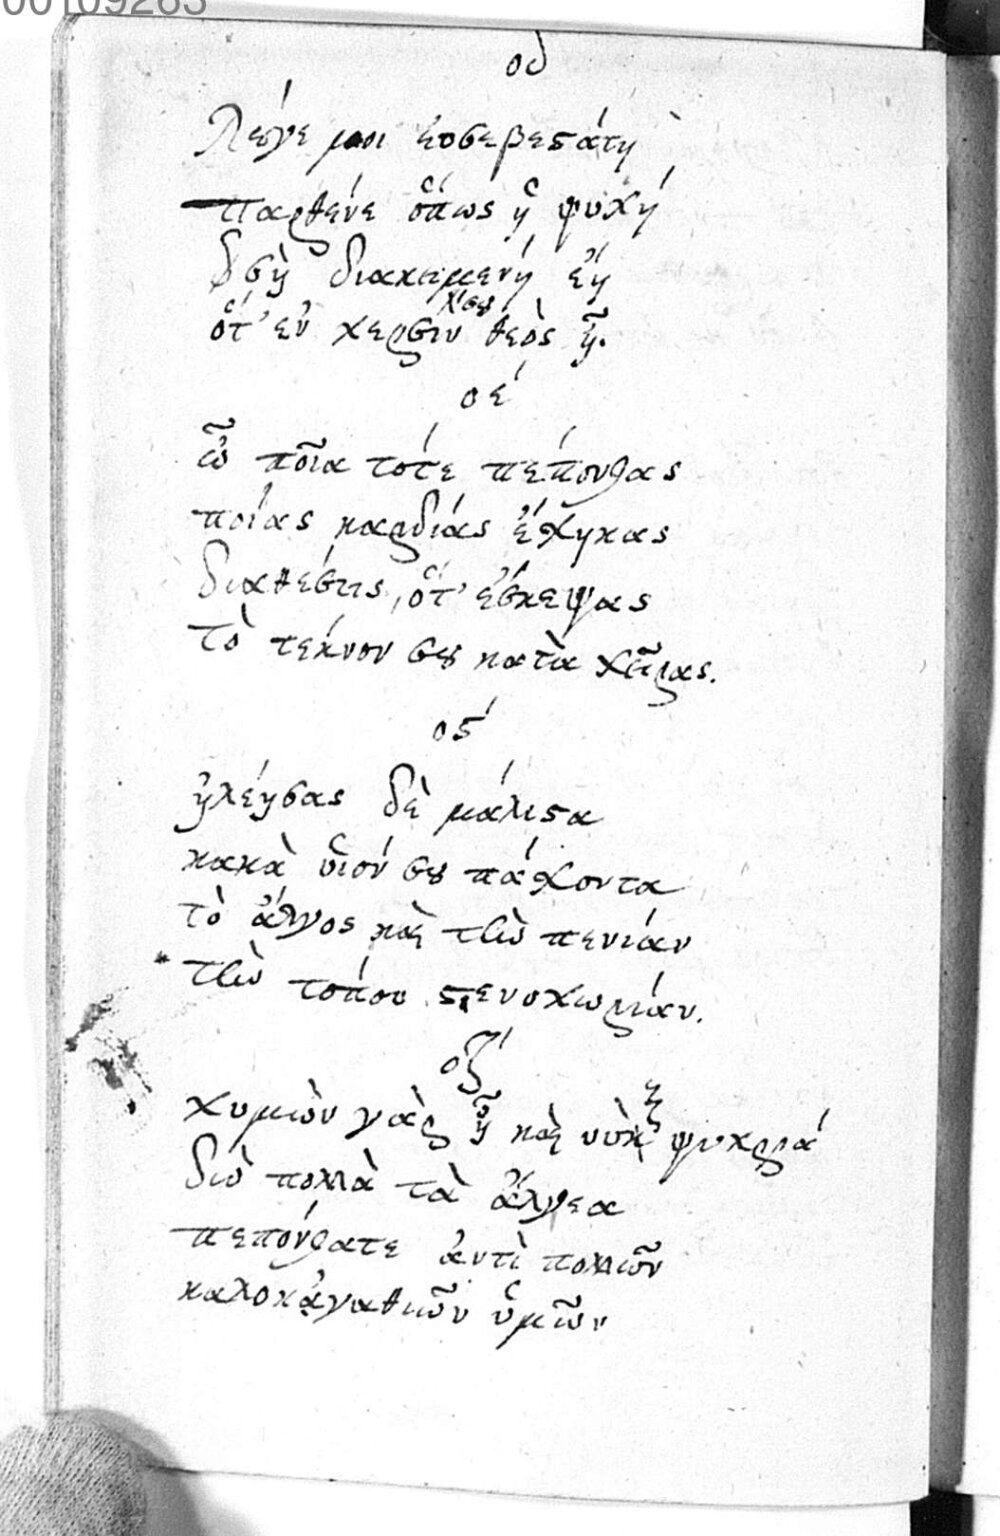 00109283
οδ
Λέγε μοι εὐσεβεστάτη
Παρθένε ὅπως ἡ ψυχή
σὴ διακειμένη ἔη
ὅτ' ἐν χερσίν λίσου θεὸς ἦ.
οέ
ὦ ποῖα τότε πέπονθας
ποίας καρδίας ἔσχηκας
διαθέσεις, ὅτ' ἔσκεψας
τὸ τέκνον σου κατὰ χεῖρας.
οϛ́
ἠλέησας δὲ μάλιστα
κακὰ ὑιόν σου πάσχοντα
τὸ ἄλγος καὶ τὴν πενίαν
τὴν τόπου στενοχωρίαν.
οζ́
χυμιὼν γὰρ ἦ καὶ νὺξ ψυχρρά
διὸ πολλὰ τὰ ἄλγεα
πεπόνθατε ἀντὶ πολλῶν
καλοκἀγαθιῶν ὑμῶν